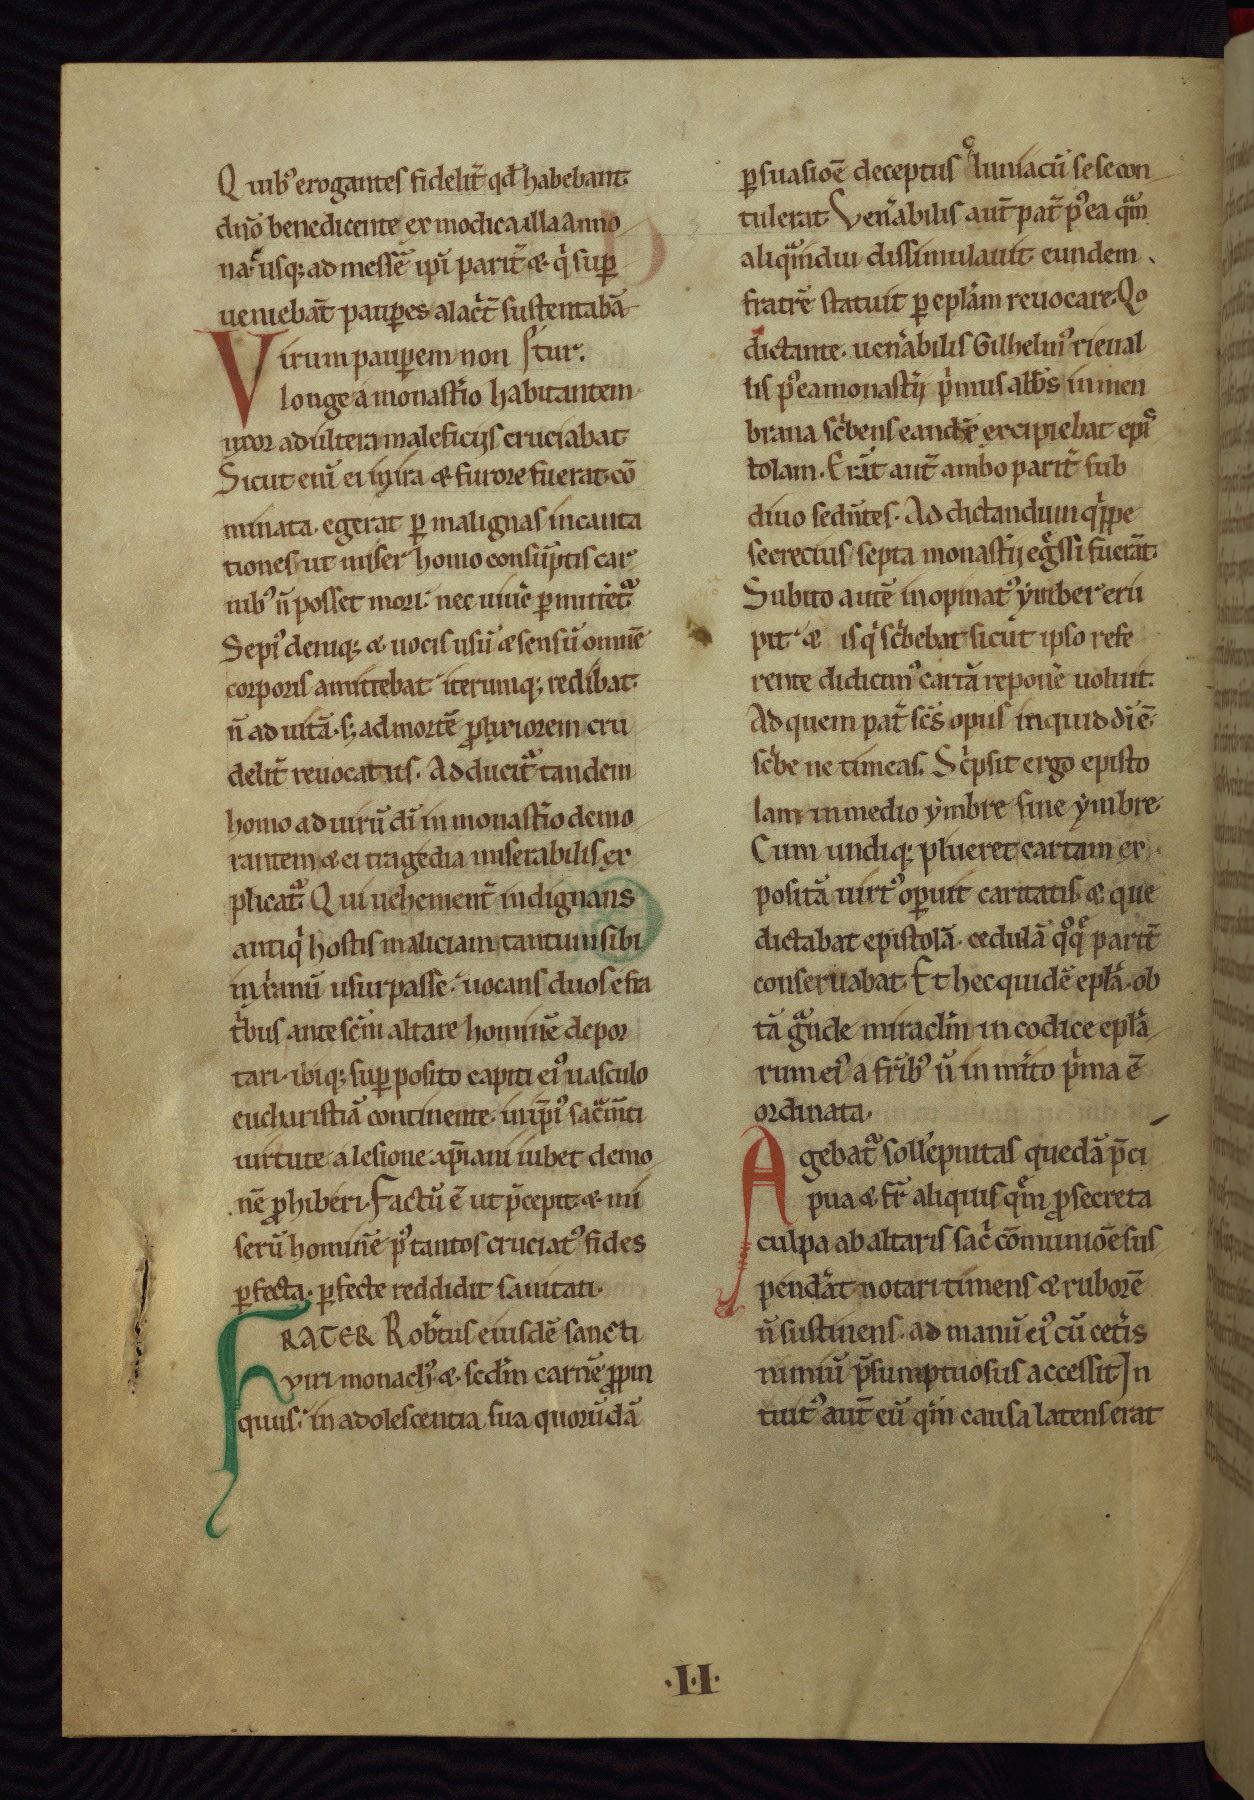 Quib᷒ erogantes fidelit̃ qđ habebant
dn̄o benedicente ex modica illa anno
na usq; ad messē ip̄i parit̃ & q̇ sup̱
ueniebāt paup̱es alacr̃t sustentabā
Virum paup̱em non
longe a monast̃io habitantem
uxor adultera maleficijs cruciabat
Sicut enī ei in ira & furore fuerat cō
minata. egerat p̱ malignas incanta
tiones ut miser homo consūptis car
nib᷒ n̄ posset mori. nec uiuē p̱mittet̃
Sepi᷒ deniq; & uocis usū & sensū omnē
corporis amittebat iterumq; redibat.
n̄ ad uitā. s; ad mortē ꝓlixiorem cru
delit̃ reuocatus. Adducit̃ tandem
homo ad uirū dī in monast̃io demo
rantem & ei tragedia miserabilis ex
plicat̃. Qui uehement̃ indignans
antiq̇ hostis maliciam tantum sibi
in xp̄ianū usurpasse. uocans duos e fra
tribus ante sc̄m altare hominē depor
tari. ibiq; sup̱ posito capiti ei᷒ uasculo
eucharistiā continente. in ip̄i᷒ sac̄m̄ti
uirtute a lesione xp̄iani iubet demo
nē ꝓhiberi. Factū ē ut p̄cepit. & mi
serū hominē p᷒ tantos cruciat᷒ fides
p̱fecta. p̱fecte reddidit sanitati.
FRATER Rob̃tus eiusdē sancti
uiri monach᷒ & sc̄dm carnē ꝓpin
quus. in adolescentia sua quorūdā
p̱suasiōe deceptus cluniacū sese con
tulerat. Ven̄abilis aut̄ pat̃ p᷒ea qᷓm
aliqᷓmdiu dissimulauit eundem
fratrē statuit p̱ ep̄lam reuocare. Qo
dictante. uen̄abilis Gilhelm᷒ rieual
lis p᷒ea monast̃ij ṗmus abb̄s in men
brana scribens eandē excipiebat epi
tolam. Erāt aut̄ ambo parit̃ sub
diuo sedn̄tes. Ad dictandum q̇ppe
secrecius septa monast̃ij eg̃ssi fuerāt.
Subito autē inopinat᷒ ẏmber eru
pit. & is q̇ sc̃bebat sicut ipso refe
rente didicim᷒ cartā reponē uoluit.
Ad quem pat̃ sc̄s opus inquid dī ē
sc̃be ne timeas. Sc̃psit ergo episto
lam in medio ẏmbre sine ẏmbre.
Cum undiq; plueret cartam ex
positā uirt᷒ op̱uit caritatis. & que
dictabat epistolā. cedulā qoq; parit̃
conseruabat. Et hec quidē ep̄la. ob
tā gᷓnde miraclm̄ in codice ep̄la
rum ei᷒ a fr̄ib᷒ ū in m̄ito ṗma ē
ordinata.
Agebat̃ sollēpnitas quedā p̄ci
pua & fr̄ aliquis qm̄ ꝓ secreta
culpa ab altaris sac̃ cōmuniōe sus
penderat notari timens & ruborē
n̄ sustinens. ad manū ei᷒ cū cet̃is
nimiū p̄sumptuosus accessit. In
tuit᷒ aut̄ eū qm̄ causa latens erat
.II.